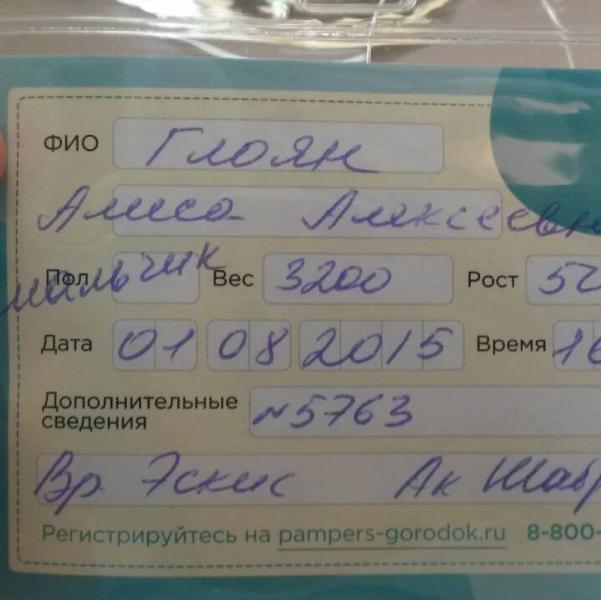 ФИО Глоян
Алиса Алексеевн
Пол мальчик Вес 3200 Рост 5
Дата 01 08 2015 Время 16
Дополнительные
сведения N5763
Вр Эскис Ак Шабр
Регистрируйтесь на pampers-gorodok.ru 8-800-